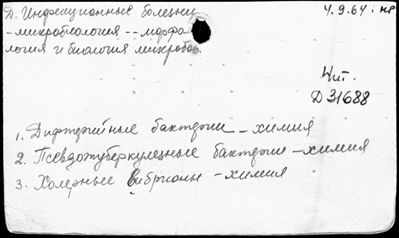 Д. Инфекционные болезни
4.9.64. нр
-микробиология -- морфо
логия и биология микробов.
Шт.
Д 31688
1. Дифтерийные бактерии - химия
2. Псевдотуберкулезные бактерии - химия
3. Холерные вибрионы - химия